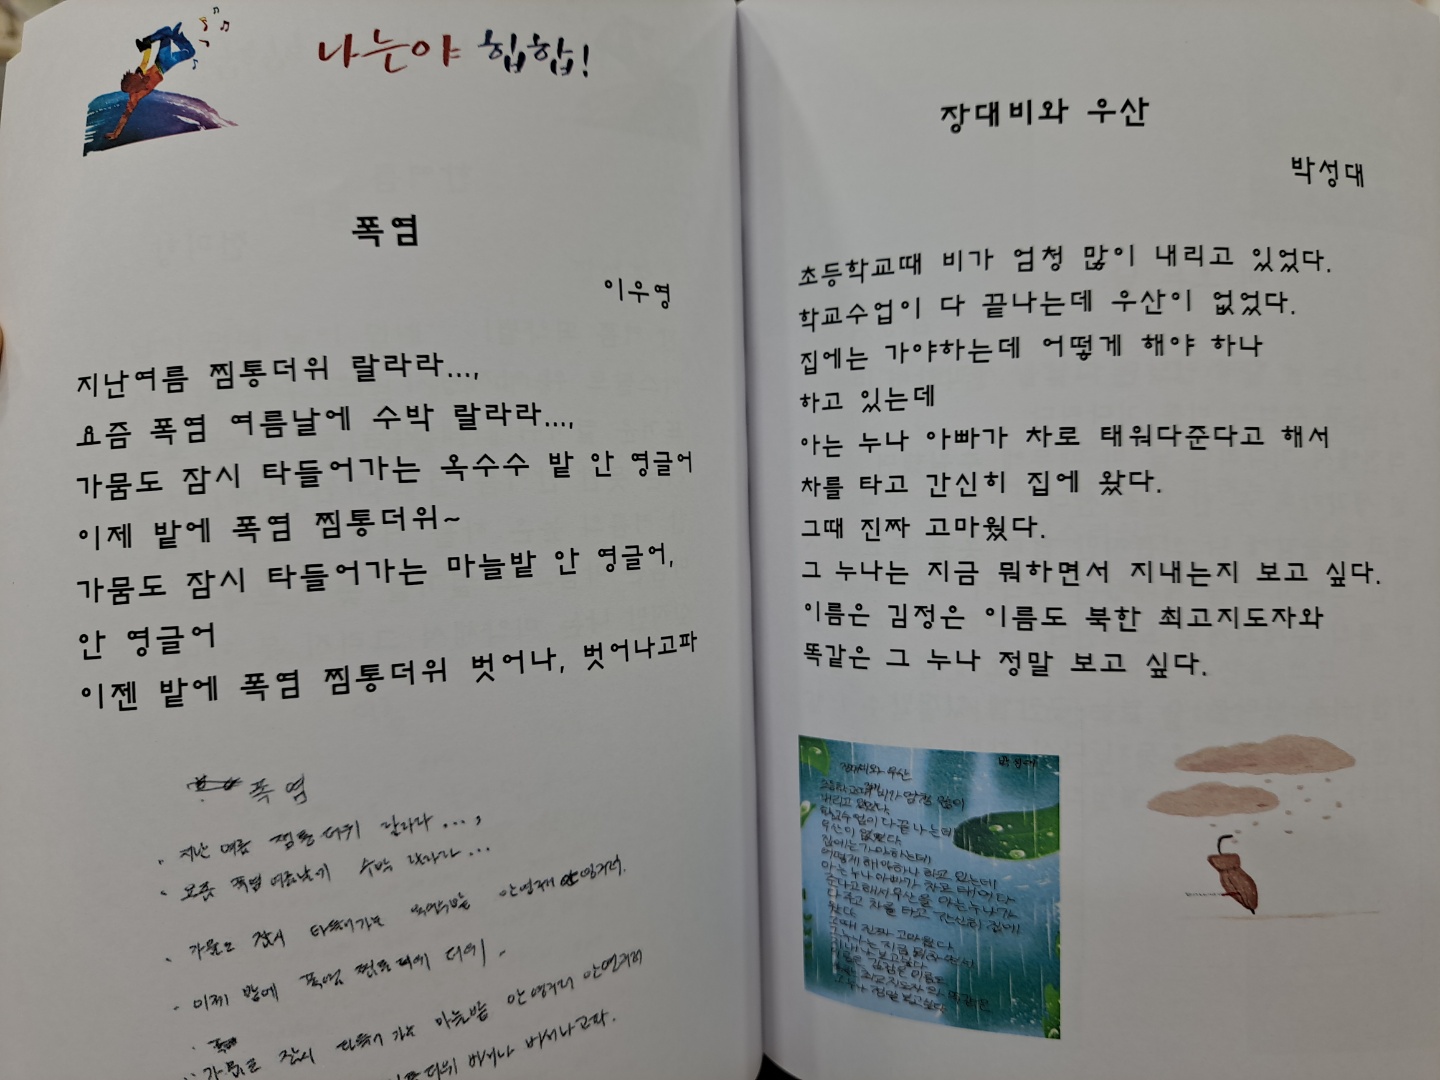 나는야 힙합!
폭염
이우영
지난여름 찜통더위 랄라라...,
요즘 폭염 여름날에 수박 랄라라...,
가뭄도 잠시 타들어가는 옥수수 밭 안 영글어
이제 밭에 폭염 찜통더위~
가뭄도 잠시 타들어가는 마늘밭 안 영글어,
안 영글어
이젠 밭에 폭염 찜통더위 벗어나, 벗어나고파
폭염
지난 여름 찜통더위 랄라라...,
요즘 폭염 여름날에 수박 랄라라...
가뭄도 잠시
이제 밭에 폭염
잠시 마늘밭
장대비와 우산
박성대
초등학교때 비가 엄청 많이 내리고 있었다.
학교수업이 다 끝나는데 우산이 없었다.
집에는 가야하는데 어떻게 해야 하나
하고 있는데
아는 누나 아빠가 차로 태워다준다고 해서
차를 타고 간신히 집에 왔다.
그때 진짜 고마웠다.
그 누나는 지금 뭐하면서 지내는지 보고 싶다.
이름은 김정은 이름도 북한 최고지도자와
똑같은 그 누나 정말 보고 싶다.
장대비와 우산
비가 엄청 많이
내리고 있었다.
학교수업이 다 끝나는데
우산이 없었다.
집에는 가야하는데
어떻게 해야하나 하고 있는데
아는 누나 아빠가 차로 태어다
준다고해서 우산을 아는 누나가
차를 타고 간신히 집에
왔다.
그때 진짜 고마웠다.